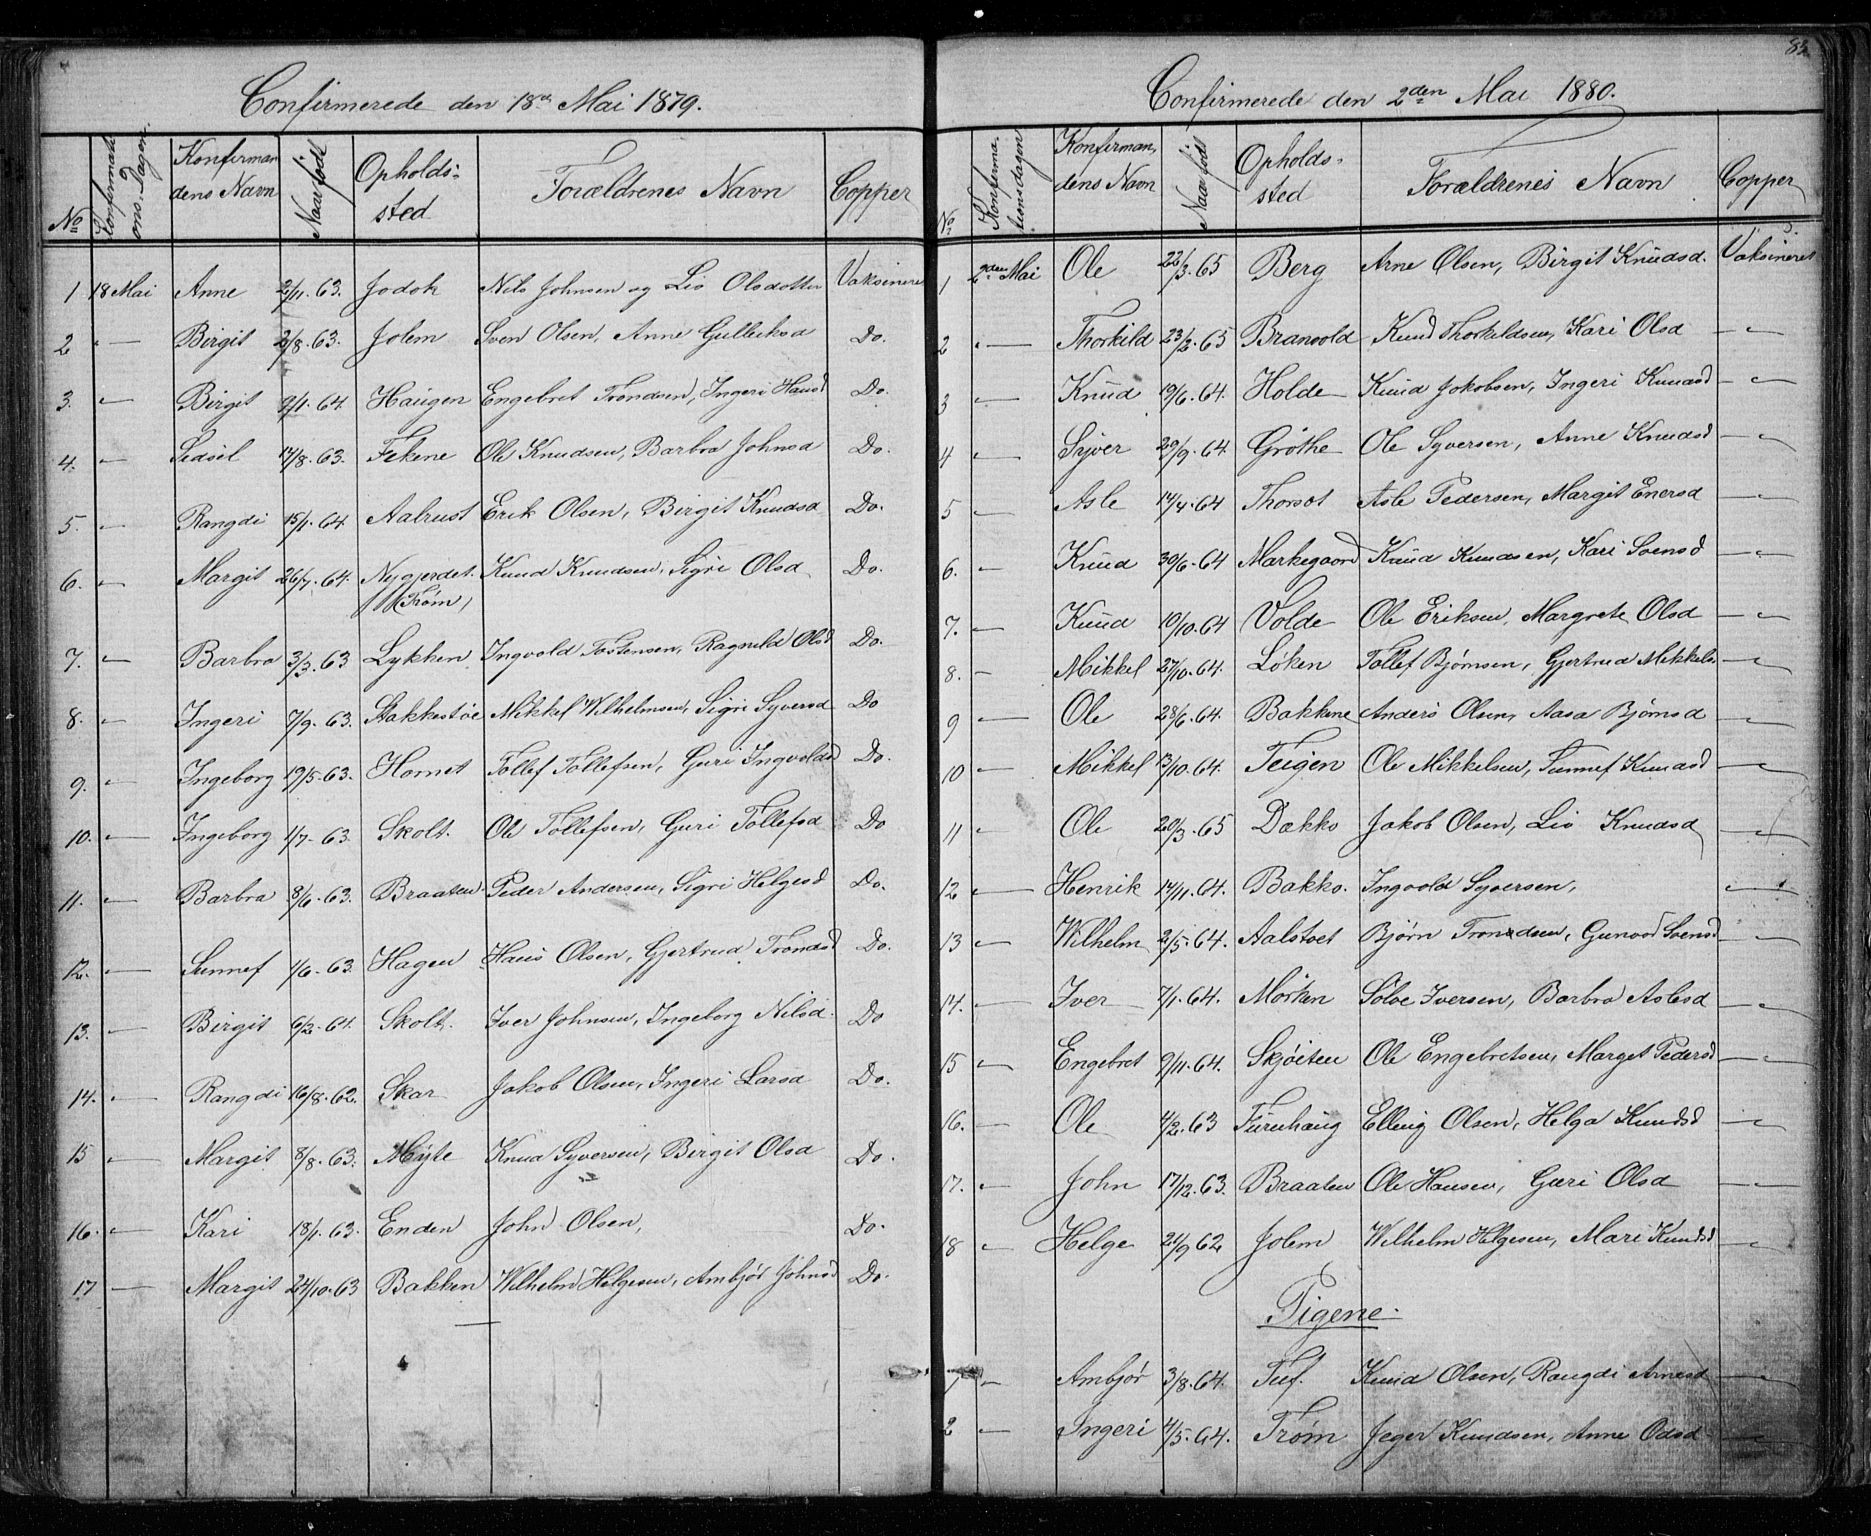 Confirmerede den 18de Mai 1879.
No Konfirmati ons. Dagen. Konfirman dens Navn Naar født Opholds- sted Forældrenes Navn Copper
1 18 Mai Anne 2/11. 63. Jodok Nils Johnsen og Liv Olsdotter Vaksineret
2 " Birgit 2/8. 63. Jolem Sven Olsen, Anne Gulleiksd Do.
3. " Birgit 9/1. 64. Haugen Engebret Trondsen, Ingeri Hansd Do.
4. " Sidsel 14/8. 63. Fekene Ole Knudsen, Barbra Johnsd Do.
5. " Rangdi 15/1. 64. Aalrust Erik Olsen, Birgit Knudsd Do.
6. " Margit 26/7. 64. Nygjerdet. Knud Knudsen, Sigri Olsd Do.
Trøm,
7. " Barbra 3/3. 63 Lykken Ingvold Tostensen, Ragnild Olsd Do.
8. " Ingeri 7/9. 63. Stakkestøe Mikkel Wilhelmsen, Sigri Syversd Do
9. " Ingeborg 19/5. 63. Hornet Tollef Tollefsen, Guri Ingvoldsd Do.
10. " Ingeborg 1/7. 63. Skolt. Ole Tollefsen, Guri Tollefsd Do
11. " Barbra 8/6. 63. Braaten Peder Andersen, Sigri Helgesd Do.
12. " Sunnef 1/6. 63. Hagen Hans Olsen, Gjertrud Trondsd Do.
13. " Birgit 6/2. 64. Skolt. Iver Johnsen, Ingeborg Nilsd. Do
14. " Rangdi 16/8. 62. Skar Jakob Olsen, Ingeri Larsd Do.
15 " Margit 8/8. 63. Myle Knud Syversen, Birgit Olsd Do.
16. " Kari 18/1. 63. Enden John Olsen, Do.
17 " Margit 24/10. 63 Bakken Wilhelm Helgesen, Ambjør Johnsd Do.
Confirmerede den 2den Mai 1880.
No. Konfirma- tionsdagen Konfirman, dens Navn Naar født Opholds- sted Forældrenes Navn Copper
1 2den Mai Ole 22/3. 65 Berg Arne Olsen, Birgit Knudsd. Vaksineret
2 " Thorkild 23/2. 65 Branvold Knud Thorkildsen, Kari Olsd "
3 " Knud 19/6. 64. Holde Knud Jakobsen, Ingeri Knudsd "
4 " Syver 29/9. 64. Grøthe Ole Syversen, Anne Knudsd "
5 " Asle 14/4. 64 Thorsot Asle Pedersen, Margit Enersd "
6. " Knud 30/6. 64 Markegaard Knud Knudsen, Kari Svensd "
7. " Knud 10/10. 64 Volde Ole Eriksen, Margrete Olsd "
8. " Mikkel 27/10. 64. Løken Tollef Bjørnsen, Gjertrud Mikkels "
9 " Ole 28/6. 64. Bakkene Anders Olsen, Aasa Bjørnsd "
10 " Mikkel 3/10. 64. Teigen Ole Mikkelsen, Sunnef Knudsd "
11 " Ole 20/3. 65 Dækko Jakob Olsen, Liv Knudsd "
12 " Henrik 14/11. 64. Bakko. Ingvold Syversen, "
13 " Wilhelm 2/5. 64. Aalstvet Bjørn Trondsen, Gunvod Svensd "
14. " Iver 7/1. 64. Mørken Sølve Iversen, Barbra Aslesd "
15 " Engebret 9/11. 64. Skjøiten Ole Engebretsen, Marget Pedersd "
16. " Ole 4/2. 63 Furuhaug Elling Olsen, Helga Knudsd "
17. " John 17/12. 63. Braaten Ole Hansen, Guri Olsd "
18 " Helge 24/9 62 Jolem Wilhelm Helgesen, Mari Knudsd "
Pigene.
1 " Ambjør 3/8. 64. Tuf. Knud Olsen, Rangdi Arnesd "
2 " Ingeri 4/5. 64. Trøm Jeger Knudsen, Anne Odsd "